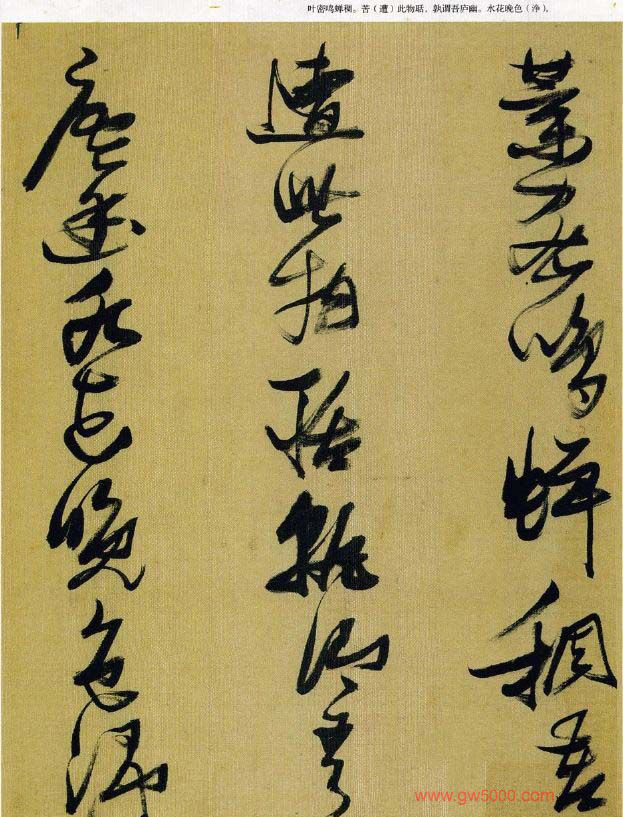 叶密鸣蝉稠。苦（遭）此物聒，孰谓吾庐幽。水花晚色（净），
葉密鳴蟬稠苦
遭此物聒孰謂吾
廬幽水花晚色淨
www.gw5000.com